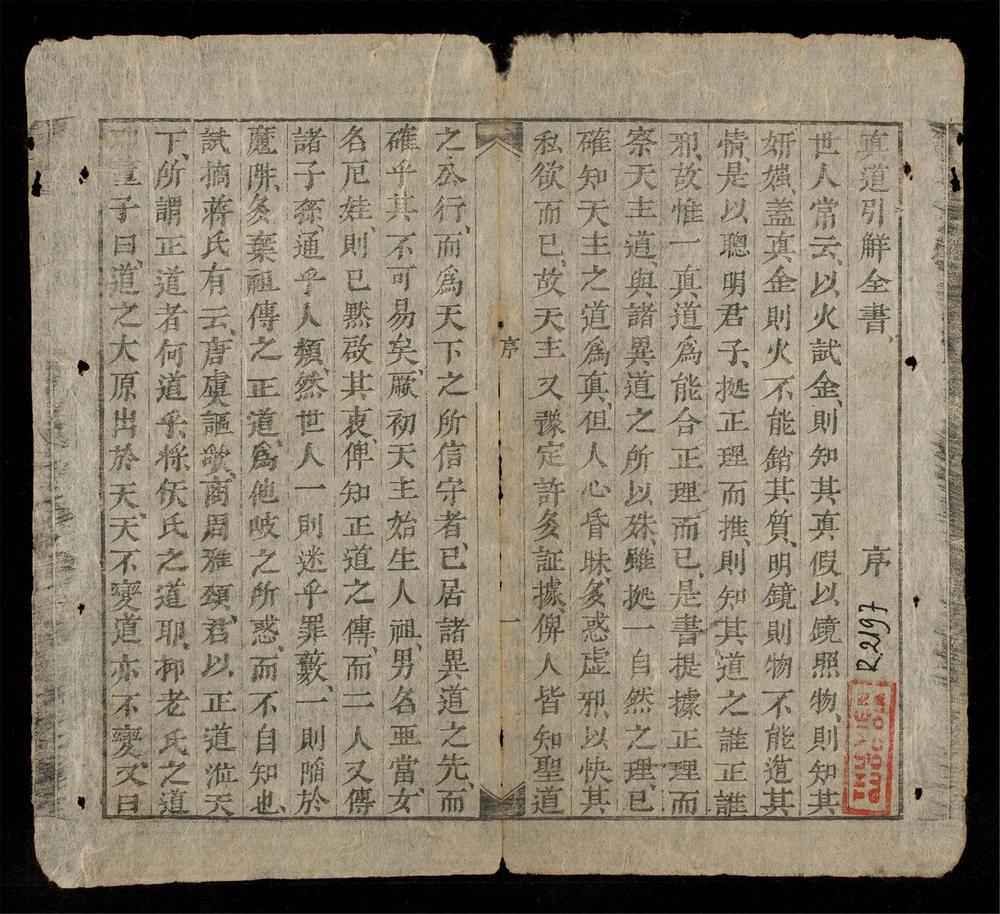 真道引解全書、　序
世人常云、以火試金、則知其真假、以鏡照物、則知其
妍媸、蓋真金則火不能銷其質、明鏡則物不能遁其
情、是以聰明君子、挺正理而推、則知其道之誰正誰
邪、故惟一真道為能合正理而已、是書提據正理而
察天主道、與諸異道之所以殊、雖挺一自然之理、已
確知天主之道為真、但人心昏昧、多惑虛邪、以快其
私欲而已、故天主又譔定許多証據、俾人皆知聖道
序
一
之公行、而為天下之所信守者、已居諸異道之先、而
確乎其不可易矣、厥初天主始生人祖、男名亜當、女
名厄娃、則已黙啟其衷、俾知正道之傳、而二人又傳
諸子孫、通乎人類、然世人一則迷乎罪藪、一則陷於
魔阱、多棄祖傳之正道、為他岐之所惑、而不自知也、
試摘蔣氏有云、唐虞謳歌、商周雅頌、君以正道涖天
下、所謂正道者何道乎、將佛氏之道耶、抑老氏之道
董子曰、道之大原出於天、天不變道亦不變、又曰
R.2197
THƯ VIỆN
QUỐC GIA